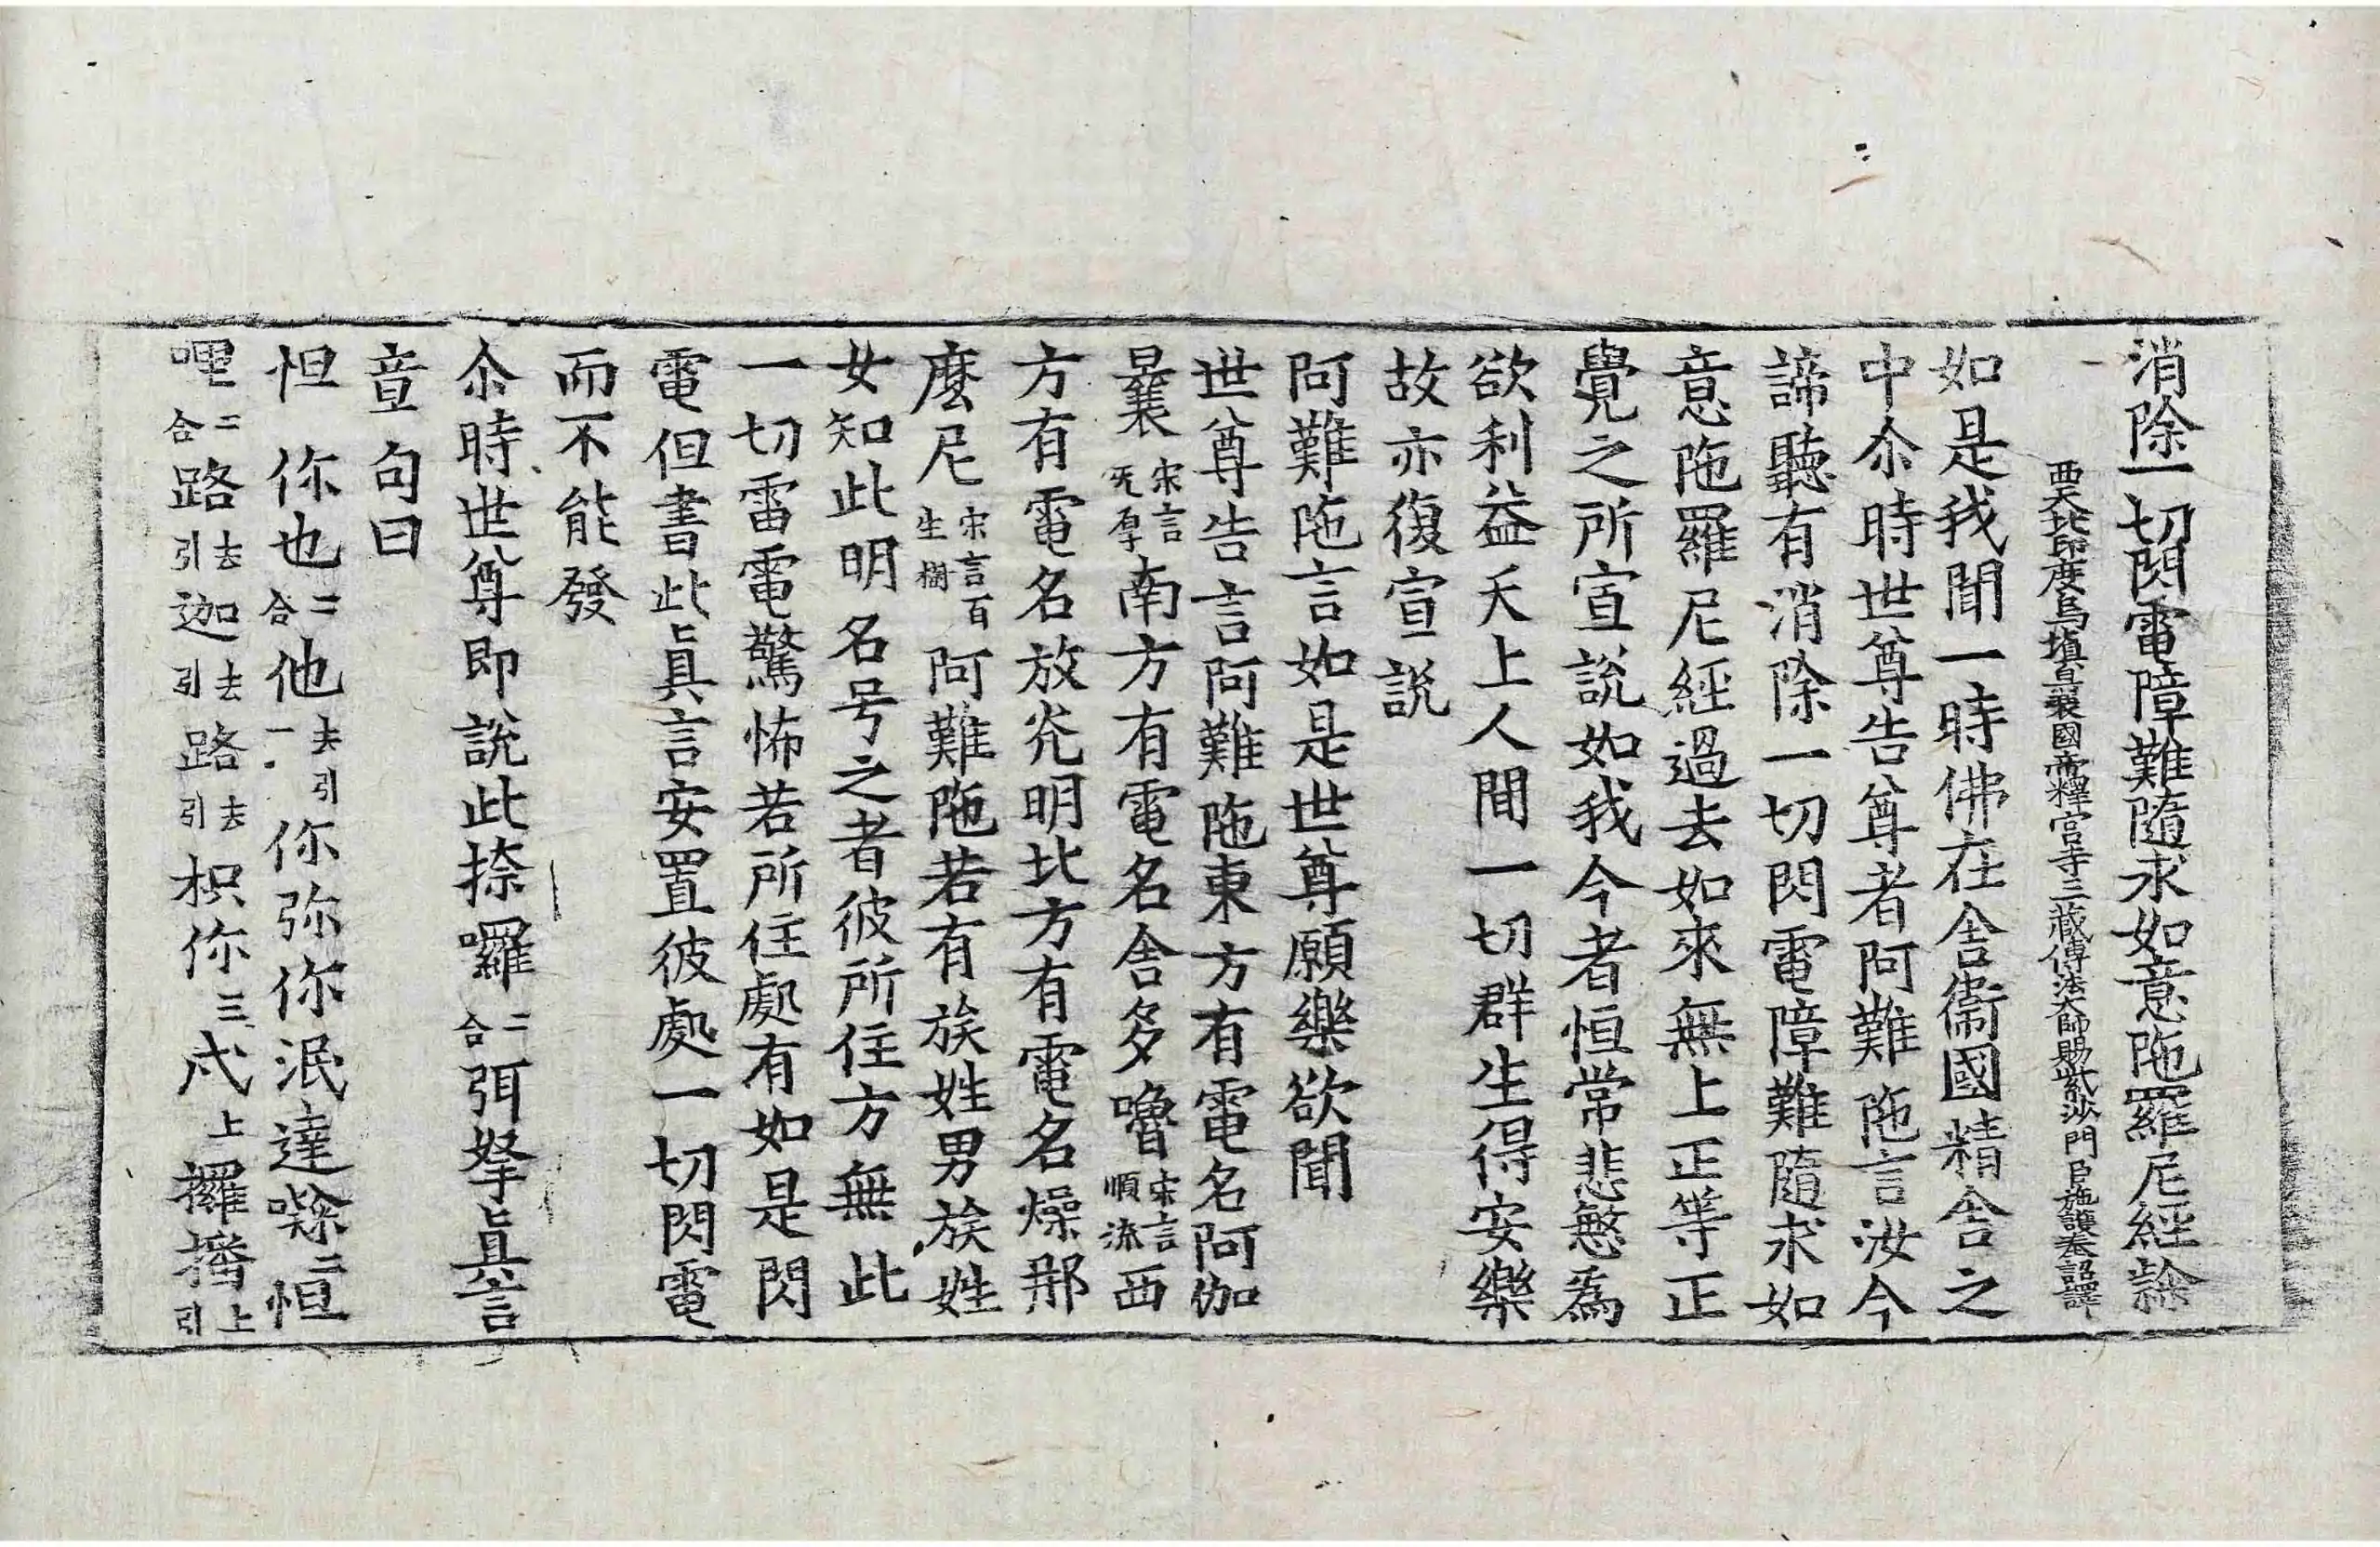 消除一切閃電障難隨求如意陁羅尼經
西天北印度烏塡曩國帝釋宮寺三藏傳法大師賜紫沙門臣施護奉詔譯
如是我聞一時佛在舍衞國精舍之
中尒時世尊告尊者阿難陁言汝今
諦聽有消除一切閃電障難隨求如
意陁羅尼經過去如來無上正等正
覺之所宣說如我今者恒常悲慜爲
欲利益天上人間一切群生得安樂
故亦復宣說
阿難陁言如是世尊願樂欲聞
世尊告言阿難陁東方有電名阿伽
曩宋言无厚南方有電名舍多嚕宋言順流西
方有電名放光明北方有電名燥那
麼尼宋言百生樹阿難陁若有族姓男族姓
女知此明名号之者彼所住方無此
一切雷電驚怖若所住處有如是閃
電但書此眞言安置彼處一切閃電
而不能發
尒時世尊即說此捺囉二合弭拏眞言
章句曰
怛你也二合他去引一你弥你泯達二怛
哩二合路去引迦去引路去引枳你三上攞播上引